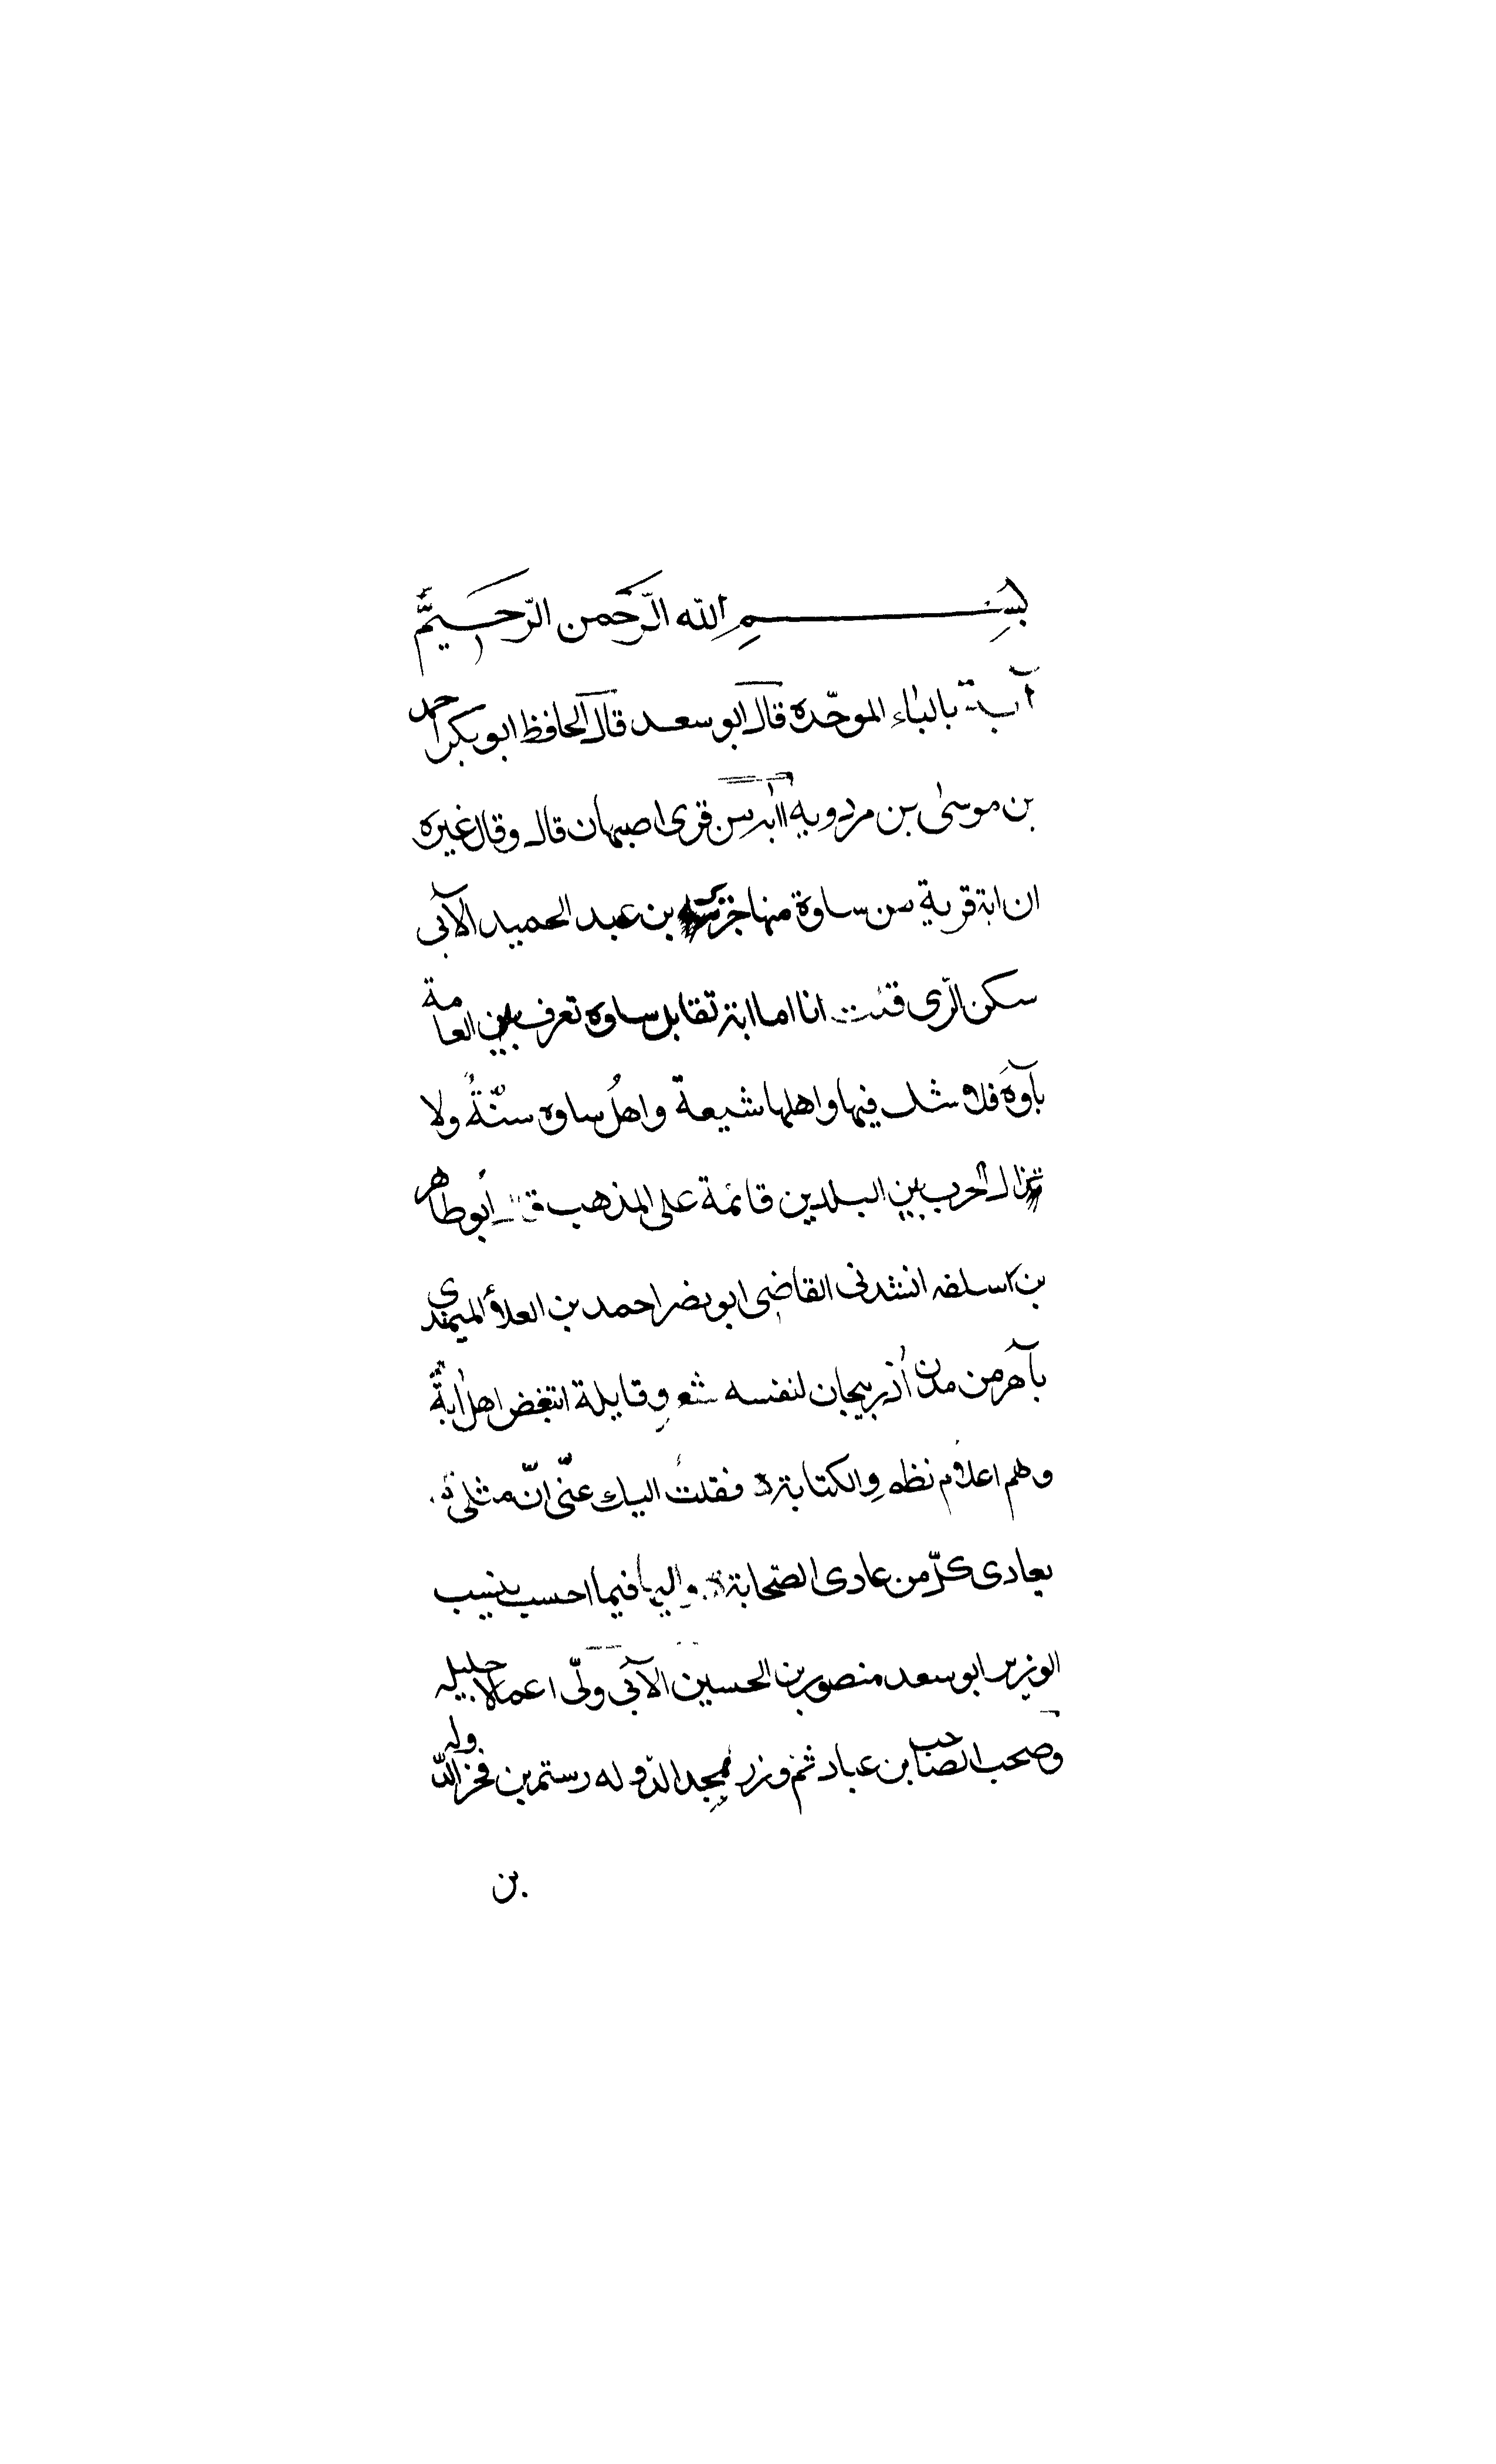 بسم الله الرّحمن الرّحيم
آبة بالباء الموحّده قال ابو سعد قال الحافظ ابو بكر احمد
بن موسى بن مردويه آبه من قرى اصبهان قال وقال غيره
ان ابة قرية من ساوة منها جرير بن عبد الحميد الآبى
سكن الرّى قلت انا اما ابة تقابل ساوه تعرف بين العامة
بآوه فلا شك فيها واهلها شيعة واهلُ ساوه سنّةٌ ولا
تزال الحرب بين البلدين قائمة على المذهب قال ابو طاهر
بن سلفه انشدنى القاضى ابو نصر احمد بن العلاء الميمندى
بآهر من مدن أذربيجان لنفسه شعر وقايلة اتبغض اهل ابةٌ
وهم اعلام نظم والكتابة فقلت اليك عنّى انّ مثلى
يعادى كلّ من عادى الصّحابة واليها فيما احسب ينسب
الوزير ابو سعد منصور بن الحسين الآبى ولّى اعمالا جليله
وصحب الصّاحب بن عباد ثم وزر لمجد الدّوله رستم بن فخر الدّوله
بن